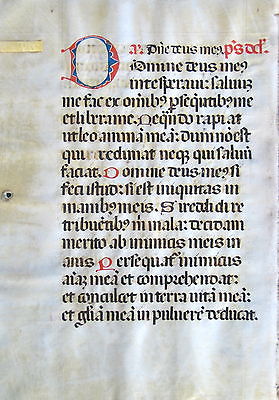 D Añ. Dñe deus meꝰ. Pš dd̃.
omine deus meus
in te speraui: saluũ
me fac ex om̃ibꝰ ꝑsequẽtibꝰ me
et libera me. Nequãdo rapiat
ut leo animã meã: dum nõ est
qui redimat neqꝫ qui saluũ
faciat. Domine deus meꝰ si
feci istud: si est iniquitas in
manibꝰ meis. Si reddidi re
tribuẽtibꝰ m̃ mala: decidam
merito ab inimicis meis in
anis. Persequat̃ inimicus
aĩaꝫ meã et comprehendat:
et conculcet in terra uitã meã:
et gl̃iã meã in puluerẽ deducat.